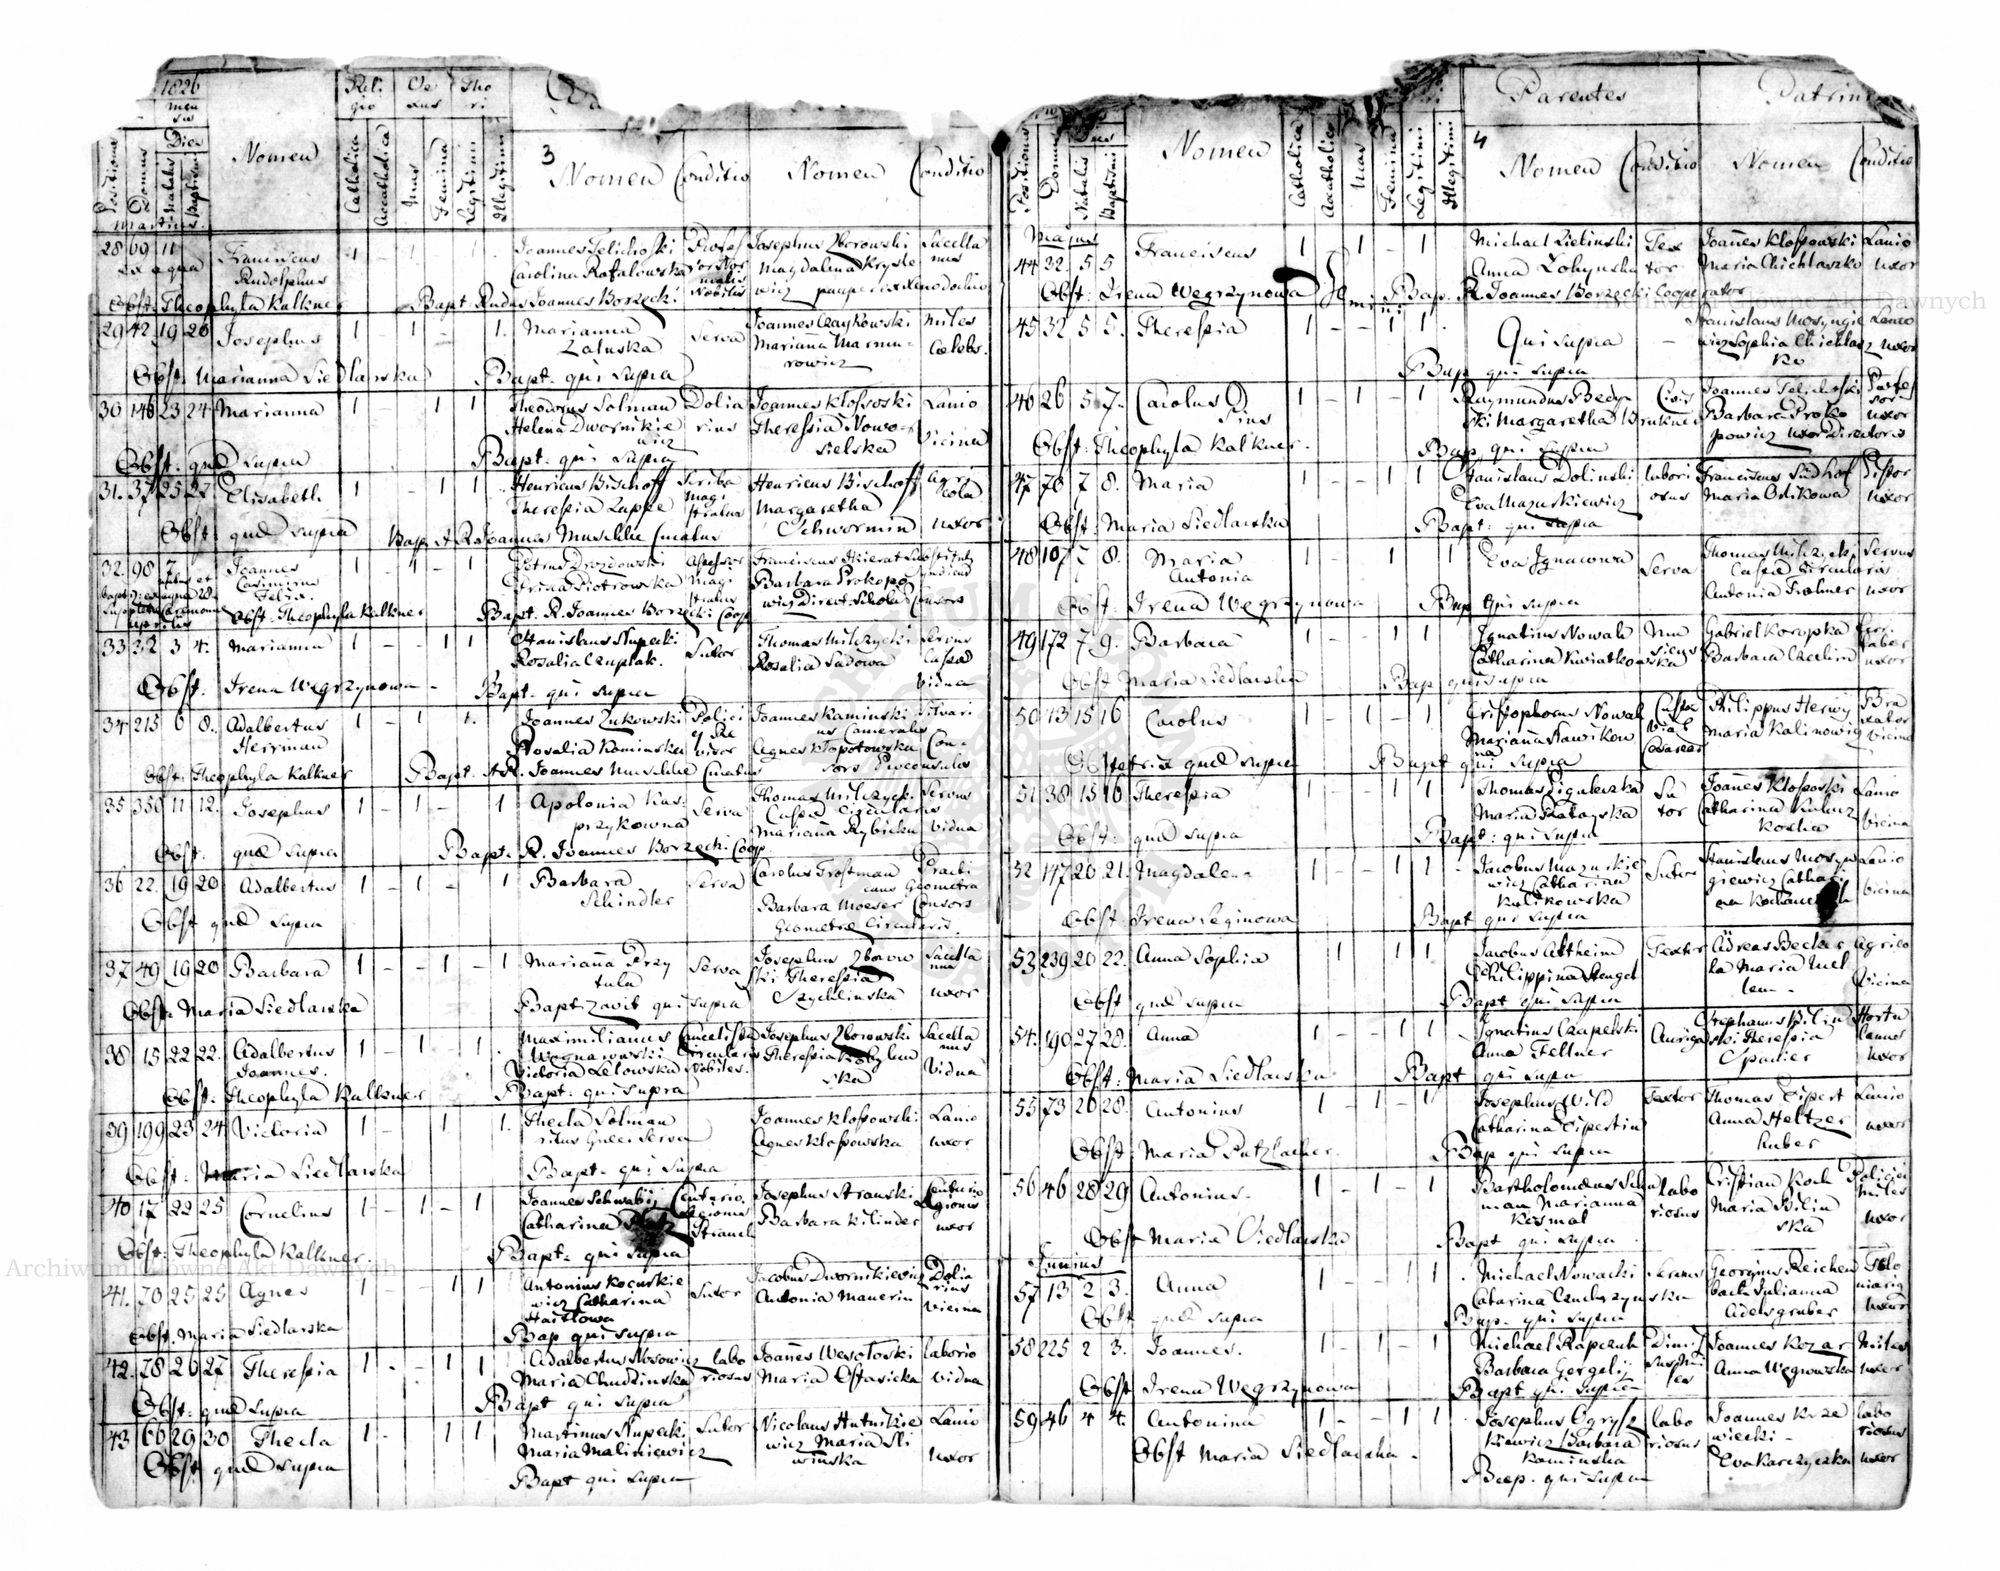 1826
men
sis
Dies
Positionis
Domus
Natalis
Baptismi
Nomen
Reli
gio
Se
xus
Tho
ri
Catholica
Acatholica
Mas
Femina
Legitimi
Illegitimi
3
Nomen
Conditio
Nomen
Conditio
Martius.
28 69 11
ex aqua
Franciscus
Rudolphus
1 1 1
Joannes
Carolina Rafalowska
Profes
sor Nor
malis
Nobilis
Josephus Zborowski
Magdalena Kryste
wicz pauper ex xenodochio
Sacella
nus
Obst: Theophyla Kalkner
Bapt. Rndus Joannes Borzęcki
29 42 19 26 Josephus
1 - 1 - 1.
Marianna
Załuska
Serva
Joannes Czaykowski
Mariana Marcin-
rowicz
Miles
Cœlebs.
Obst. Marianna Siedlarska
Bapt. qui supra
30 146 23 24 Marianna
1 - 1 1
Theodorus Solman
Helena Dwornikie
wicz
Dolia
rius
Joannes Klossoski
Theressia Nowo-
sielska
Lanio
Vicina
Obst: quæ supra
Bapt: qui supra
31. 37 25 27 Elisabeth
1 - 1 1
Henricus Bischoff
Theresia Zappe
Scriba
magi
stralus
Henricus Bischoff
Margaretha
Schwormin
Agri
cola
uxor
Obst: quæ supra
Bapt. A R Joannes Muschke Curatus
32. 98 7
Joannes
Casimirus
Felix.
1 - 1 - 1
Petrus Drozdowski
Piotrowska
Assessor
Magi
stratus
Franciscus Skierat
Barbara Prokopo
wicz Direct. Schola
Substitut
Syndici
Consors
Obst. Theophyla Kalkner
Bapt. R. Joannes Borzęcki Coop
Aprilis
33 32 3 4. Marianna
1 - - 1 1
Stanislaus Słupecki
Rosalia Czuplak.
Sutor
Thomas Milczycki
Rosalia Sadowa
Servus
Cassæ
Vidua
Obst. Irena Wegrzynowa -
Bapt. qui supra
34 215 6 8. Adalbertus
Herrman
1 - 1 1.
Joannes Zukowski
Rosalia Kaminska
Polici
Re
visor
Joannes Kaminski
us Cameralis
Agnes Kłopotowska Con-
sors Proconsulis
Silvari
Obst: Theophyla Kalkner
Bapt. AR. Joannes Muschke Curatus
35 350 11 12. Josephus
1 - 1 - 1
Apolonia Kas-
przykowna
Serva
Thomas Milczycki
Cassæ Circularis
Mariana Rybicka
Servus
Vidua
Obst. quæ supra
Bapt. R. Joannes Borzęcki Coop.
36 22. 19 20 Adalbertus
1 - 1 - 1
Barbara
Schindler
Serva
Carolus Trostman
Barbara Moeser
Geometræ Circularis.
Practi
cans Geometra
Consors
Obst quæ supra
37 49 19 20 Barbara
1 - - 1 - 1
Marianna Przy
tula
Serva
Josephus Zborow
ski Theressia
Szychlinska
Sacella
nus
uxor
Obst: Maria Siedlarska
Baptizavit qui supra
38 15 22 22. Adalbertus
Joannes.
1 - 1 1
Maximilianus
Wognarowski
Victoria Lelowska
Cancellista
Circularis
Nobiles.
Josephus Zborowski
Theressia Kobylan
ska
Sacella
nus
Vidua
Obst. Theophyla Kalkner
Bapt: qui supra
39 199 23 24 Victoria
1 - 1 1.
Thecla Solman
ritus Græci Serva
Joannes Klossowski
Agnes Klossowska
Lanio
uxor
Obst: Maria Siedlarska
Bapt. qui supra
40 17 22 25 Cornelius
1 - 1 - 1
Joannes Schwabij
Catharina
Centurio
Legionis
Strauch
Josephus Stranski
Barbara Kilinder
Centurio
Legionis
uxor
Obst: Theophyla Kalkner.
Bapt. qui supra
41. 70 25 25 Agnes
1 - 1 1
Antonius Kocurkie
wicz Catharina
Haitlowa
Sutor
Jacobus Dwornikiewicz
Antonia Mauerin
Dolia
rius
Vicina
Obst. Maria Siedlarska
Bap qui supra
42. 78 26 27 Theressia
1 - - 1 1
Adalbertus Nosowicz
Maria Chudzinska
labo
riosus
Joannes Wesołoski
Maria Ostasicka
laborio
Vidua
Obst: quæ supra
Bapt qui supra
43 66 29 30 Thecla
1 - 1 1
Martinus Słupecki
Maria Malikiewicz
Sutor
Nicolaus Hutnikie
wicz Maria Sli
winska
Lanio
uxor
Obst: quæ supra
Bapt qui supra
Positionis
Domus
Dies
Natalis
Baptismi
Nomen
Catholica
Acatholica
Mas
Femina
Legitimi
Illegitimi
4
Parentes
Patrini
Nomen
Conditio
Nomen
Conditio
Majus
44 32. 5 5
Franciscus
1 - 1 - 1
Michael Zielinski
Anna Łobynska
Tex
tor
Joannes Klossowski
Maria Cichlaszko
Lanio
uxor
Obst: Irena Wegrzynowa
Gemini
Bap. R. Joannes Borzęcki Cooperator
45 32 5 5. Theressia
1 - - 1 1
Qui supra
-
Stanislaus Mosyngie
wicz Sophia Cichlasz
ko
Lanio
uxor
Bap qui supra
46 26 5 7. Carolus
Pius
1 - 1 - 1
Raymundus Bedyn
ski Margaretha Brukner
Civis
Joannes
Barbara Proko
powicz uxor Directoris
Profes
sor
uxor
Obst: Theophyla Kalkner.
Bap. qui supra
47 70 7 8. Maria
1 - - 1 1
Stanislaus Dolinski
Eva Mazurkiewicz
labori
osus
Franciscus Südhof
Maria Orlikowa
Pistor
uxor
Obst: Maria Siedlarska
Bapt: qui supra
48 107 7 8. Maria
Antonia
1 - 1 1
Eva Ignacowa
Serva
Thomas Milczycki
Cassæ Circularis
Antonia Frahmer
Servus
uxor
Obst: Irena Wegrzynowa
Bap qui supra
49 172 7 9. Barbara
1 - - 1 1
Ignatius Nowak
Catharina Kwiatkowska
Mu
sicus
Gabriel Koropka
Barbara
Ferri
faber
uxor
Obst Maria Siedlarska
Bap qui supra
50 13 15 16 Carolus
1 - 1 - 1
Cristophorus Nowak
Marianna Stawikow
na
Custos
Viae
Cæsareæ
Philippus Herwy
Maria Kalinowicz
Bra
xator
Vicina
Obstetrix quæ supra
Bapt qui supra
51 38 15 16 Theressia
1 - - 1 1
Thomas
Maria Ratayska
Su
tor
Joannes Klossoski
Catharina
Lanio
Vicina
Obst: quæ supra
Bapt: qui supra
52 147 20 21. Magdalena
1 - - 1 1
Jacobus Mazurkie
wicz Catharina
Kulikowska
Sutor
Stanislaus Mosyn
giewicz Cathari
na
Lanio
Vicina
Obst Irena Leginowa
Bapt qui supra
53 239 20 22. Anna Sophia
1 1 1
Jacobus Altheim
Philippina Stengel
Textor
Adreas Becker
la Maria Mel
lem -
Agrico
Vicina
Obst quæ supra
Bapt qui supra
54. 190 27 28. Anna
1 - - 1 1
Ignatius Czapelski
Anna Fellner
Auriga
Stephanus Bilin
ski Theressia
Spacier
Hortu
lanus
uxor
Obst: Maria Siedlarska.
Bapt qui supra
55 73 26 28. Antonius
1 - 1 - 1
Josephus Wild
Catharina Eipertin
Textor
Thomas Eipert
Anna Heltzer
huber
Lanio
uxor
Obst. Maria Putzlacher.
Bap qui supra
56 46 28 29 Antonius.
1 - 1 - 1
Bartholomæus Schu
man Marianna
Kosmal
labo
riosus
Cristian Koch
Maria Bilin
ska
Policiæ
Miles
uxor
Obst Maria Siedlarska
Bapt qui supra
Junius
57 13 2 3. Anna
1 - 1 1
Michael Nowacki
Catarina
Servus
Georgius Reichen
bach Julianna
Adelsgruber
Telo
niarig
uxor
Obst quæ supra
Bap. qui supra
58 225 2 3. Joannes.
1 - 1 - 1
Michael Kapczuk
Barbara Gergelij
Dimis
sus Mi
les
Joannes Kozar
Anna Wegrowska
Miles
uxor
Obst Irena Wegrzynowa
Bapt qui supra
59 46 4 4. Antonina
1 - - 1 1
Josephus Ogrysz
kiewicz Barbara
Kaminska
labo
riosus
Joannes Krze
wiecki -
Eva Karczyczka
labo
riosus
uxor
Obst Maria Siedlarska -
Bap. qui supra
Archiwum Główne Akt Dawnych
Archiwum Główne Akt Dawnych